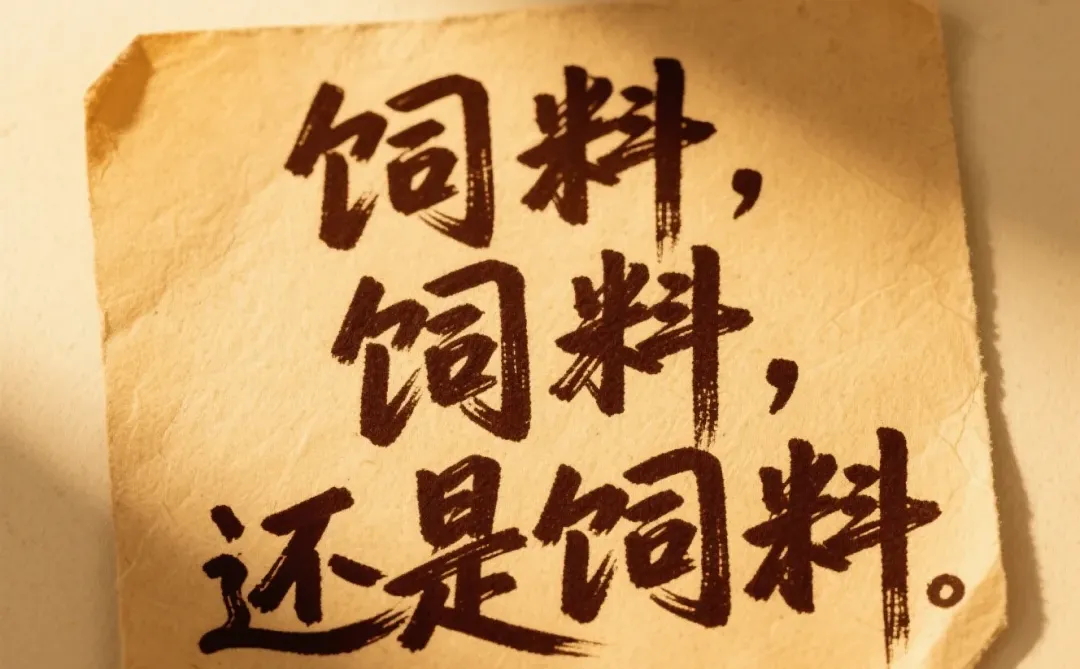 饲料，
饲料，
还是饲料。